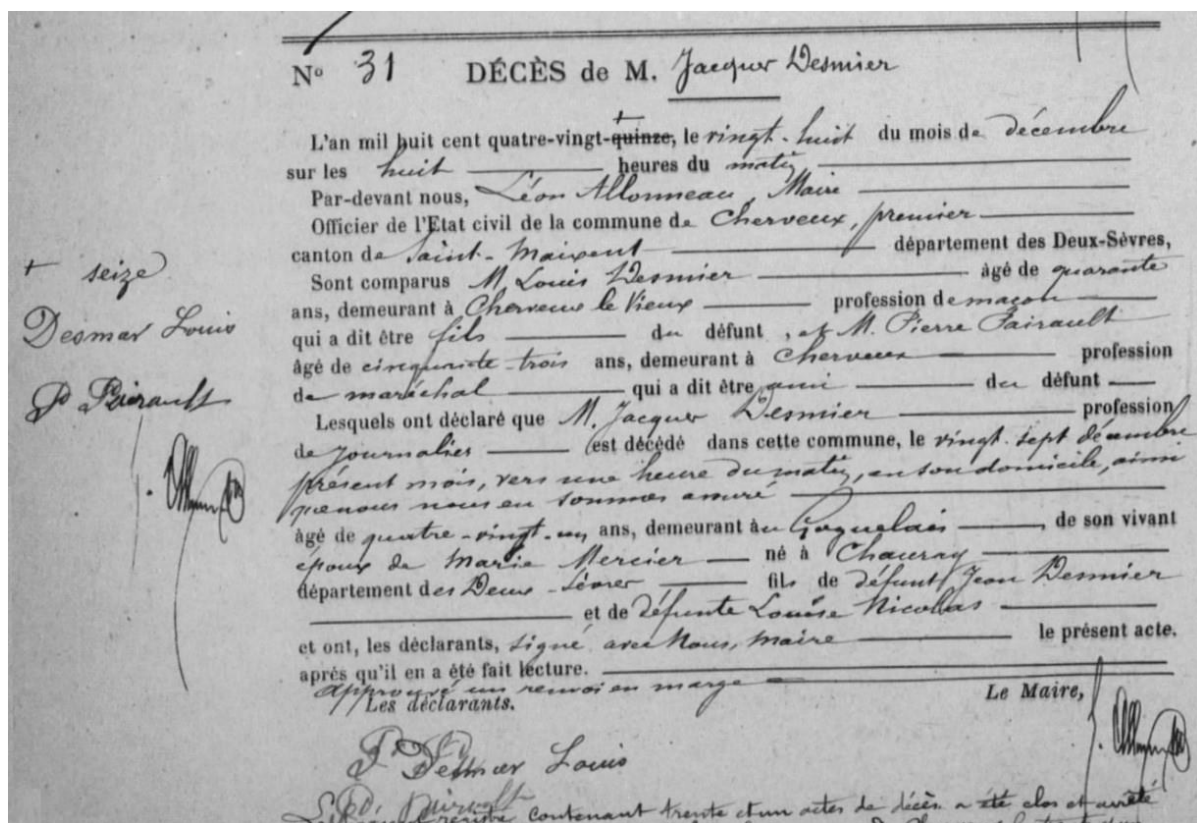 No 31 DÉCÈS de M. Jacques Desmier
L'an mil huit cent quatre-vingt-quinze, le vingt-huit du mois de décembre
sur les huit heures du matin
Par-devant nous, Léon Allonneau, Maire
Officier de l'Etat civil de la commune de Cherveux, premier
canton de Saint-Maixent département des Deux-Sèvres,
Sont comparus M. Louis Desmier âgé de quarante
ans, demeurant à Cherveux le Vieux profession de maçon
qui a dit être fils du défunt, et M. Pierre Pairault
âgé de cinquante-trois ans, demeurant à Cherveux profession
de maréchal qui a dit être ami du défunt
Lesquels ont déclaré que M. Jacques Desmier profession
de journalier est décédé dans cette commune, le vingt-sept décembre
présent mois, vers une heure du matin, en son domicile, ainsi
que nous nous en sommes assuré
âgé de quatre-vingt-un ans, demeurant à de son vivant
époux de Marie Mercier né à Chauray
département des Deux-Sèvres fils de défunt Jean Desmier
et de défunte Louise Nicolas
et ont, les déclarants, signé avec Nous, maire le présent acte.
après qu'il en a été fait lecture.
Approuvé un renvoi en marge
Les déclarants. Le Maire,
+ seize
Desmier Louis
Pairault
Desmier Louis
Pairault
contenant trente et un actes de décès a été clos et arrêté